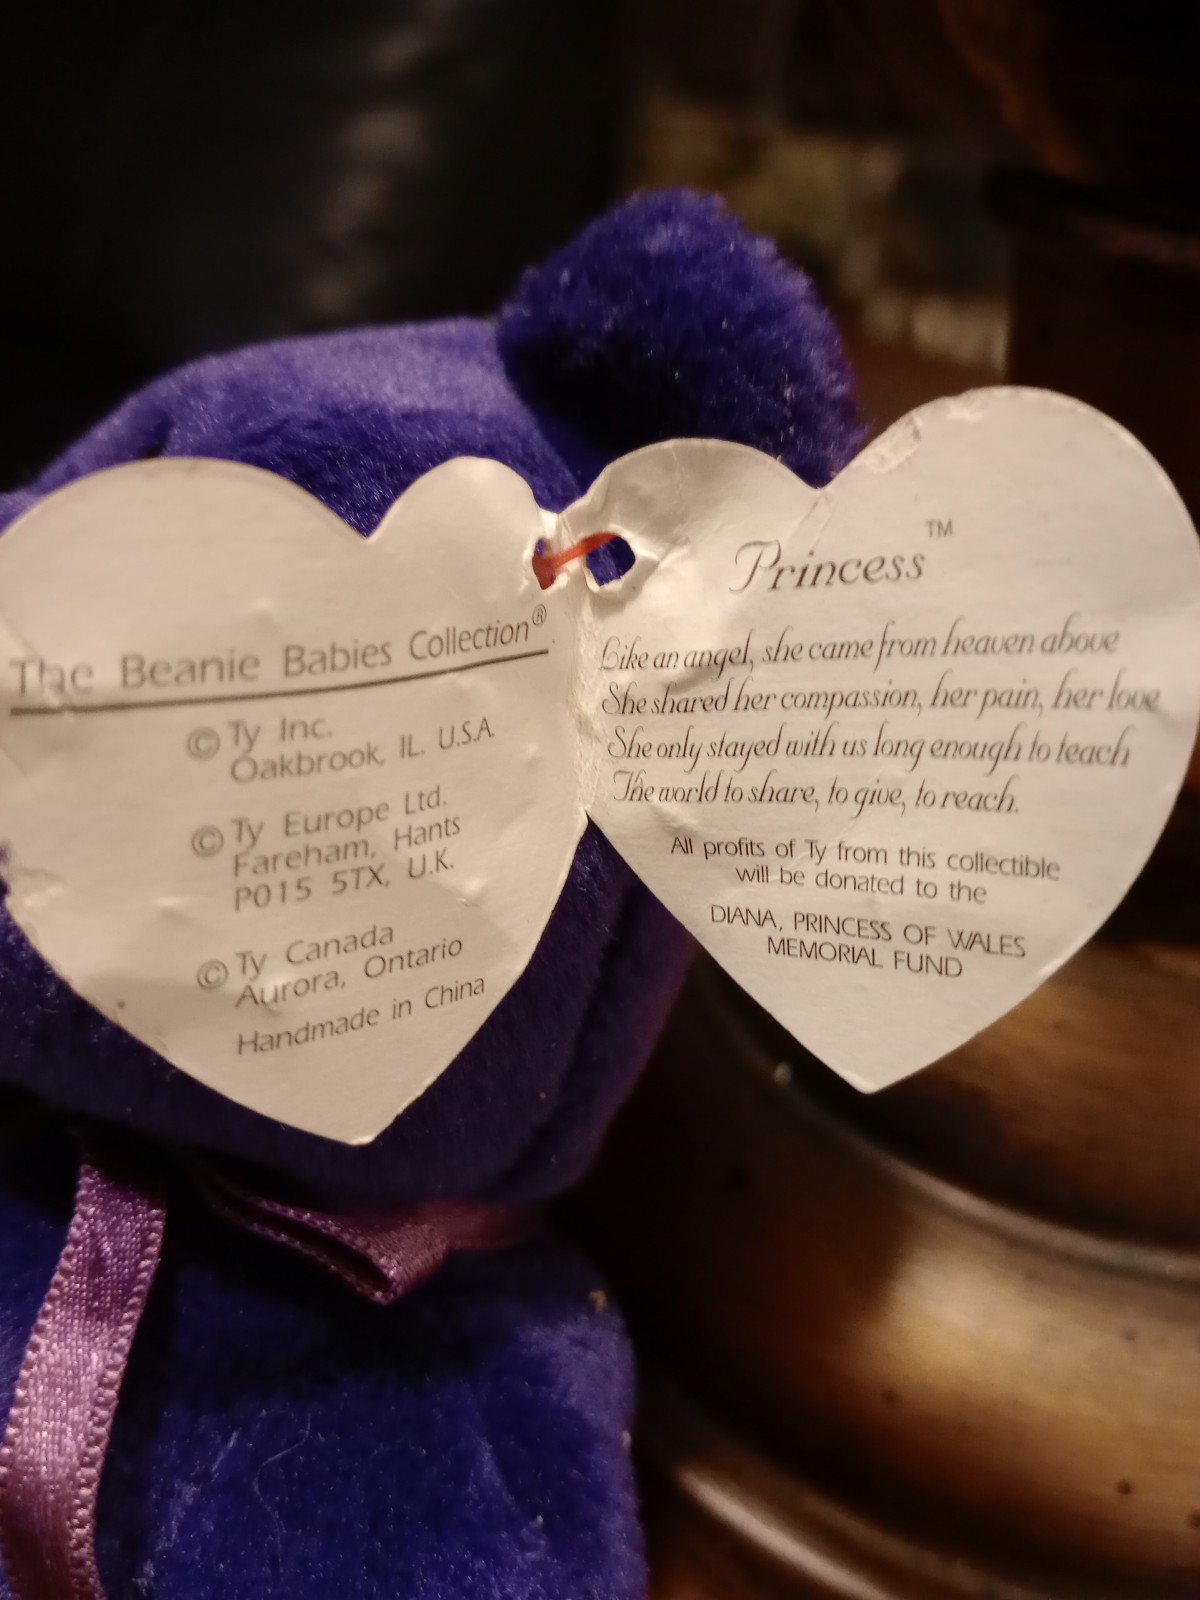 The Beanie Babies Collection®
© Ty Inc.
Oakbrook, IL. U.S.A.
© Ty Europe Ltd.
Fareham, Hants
P015 5TX, U.K.
© Ty Canada
Aurora, Ontario
Handmade in China
Princess™
Like an angel, she came from heaven above
She shared her compassion, her pain, her love
She only stayed with us long enough to teach
The world to share, to give, to reach.
All profits of Ty from this collectible
will be donated to the
DIANA, PRINCESS OF WALES
MEMORIAL FUND